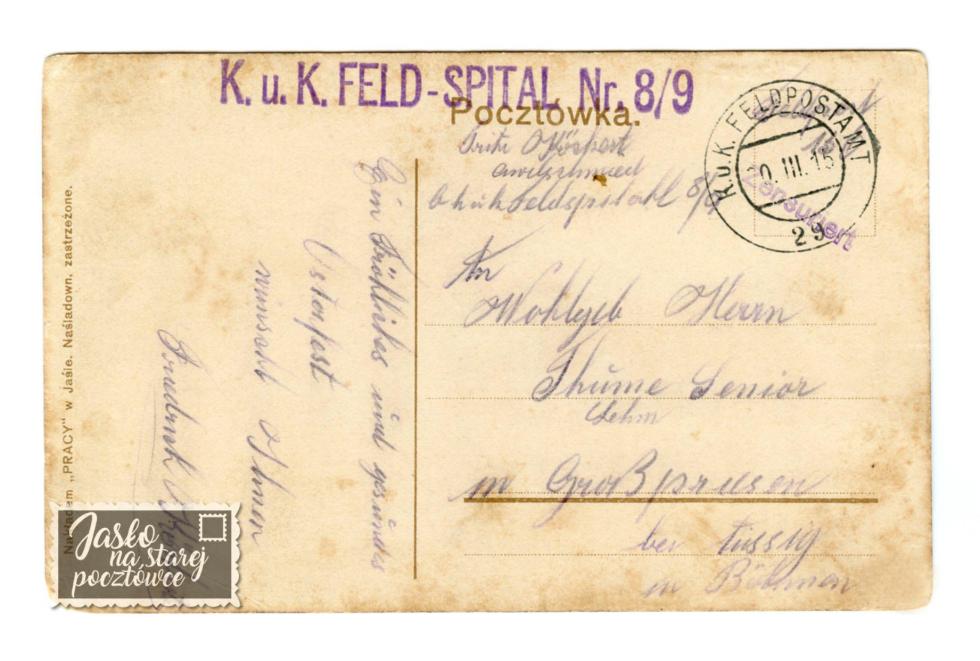 K. u. K. FELD-SPITAL Nr. 8/9
Pocztówka.
K.u.K. FELDPOSTAMT
0. III. 15
29
Zensuriert
Feldspital 8/9
An
Wohlgeb Herrn
Thume Senior
in Großpriesen
bei Aussig
in Böhmen
Ein Fröhliches und gesundes
Osterfest
wünscht Ihnen
Nakładem „PRACY" w Jaśle. Naśladown. zastrzeżone.
Jasło
na starej
pocztówce